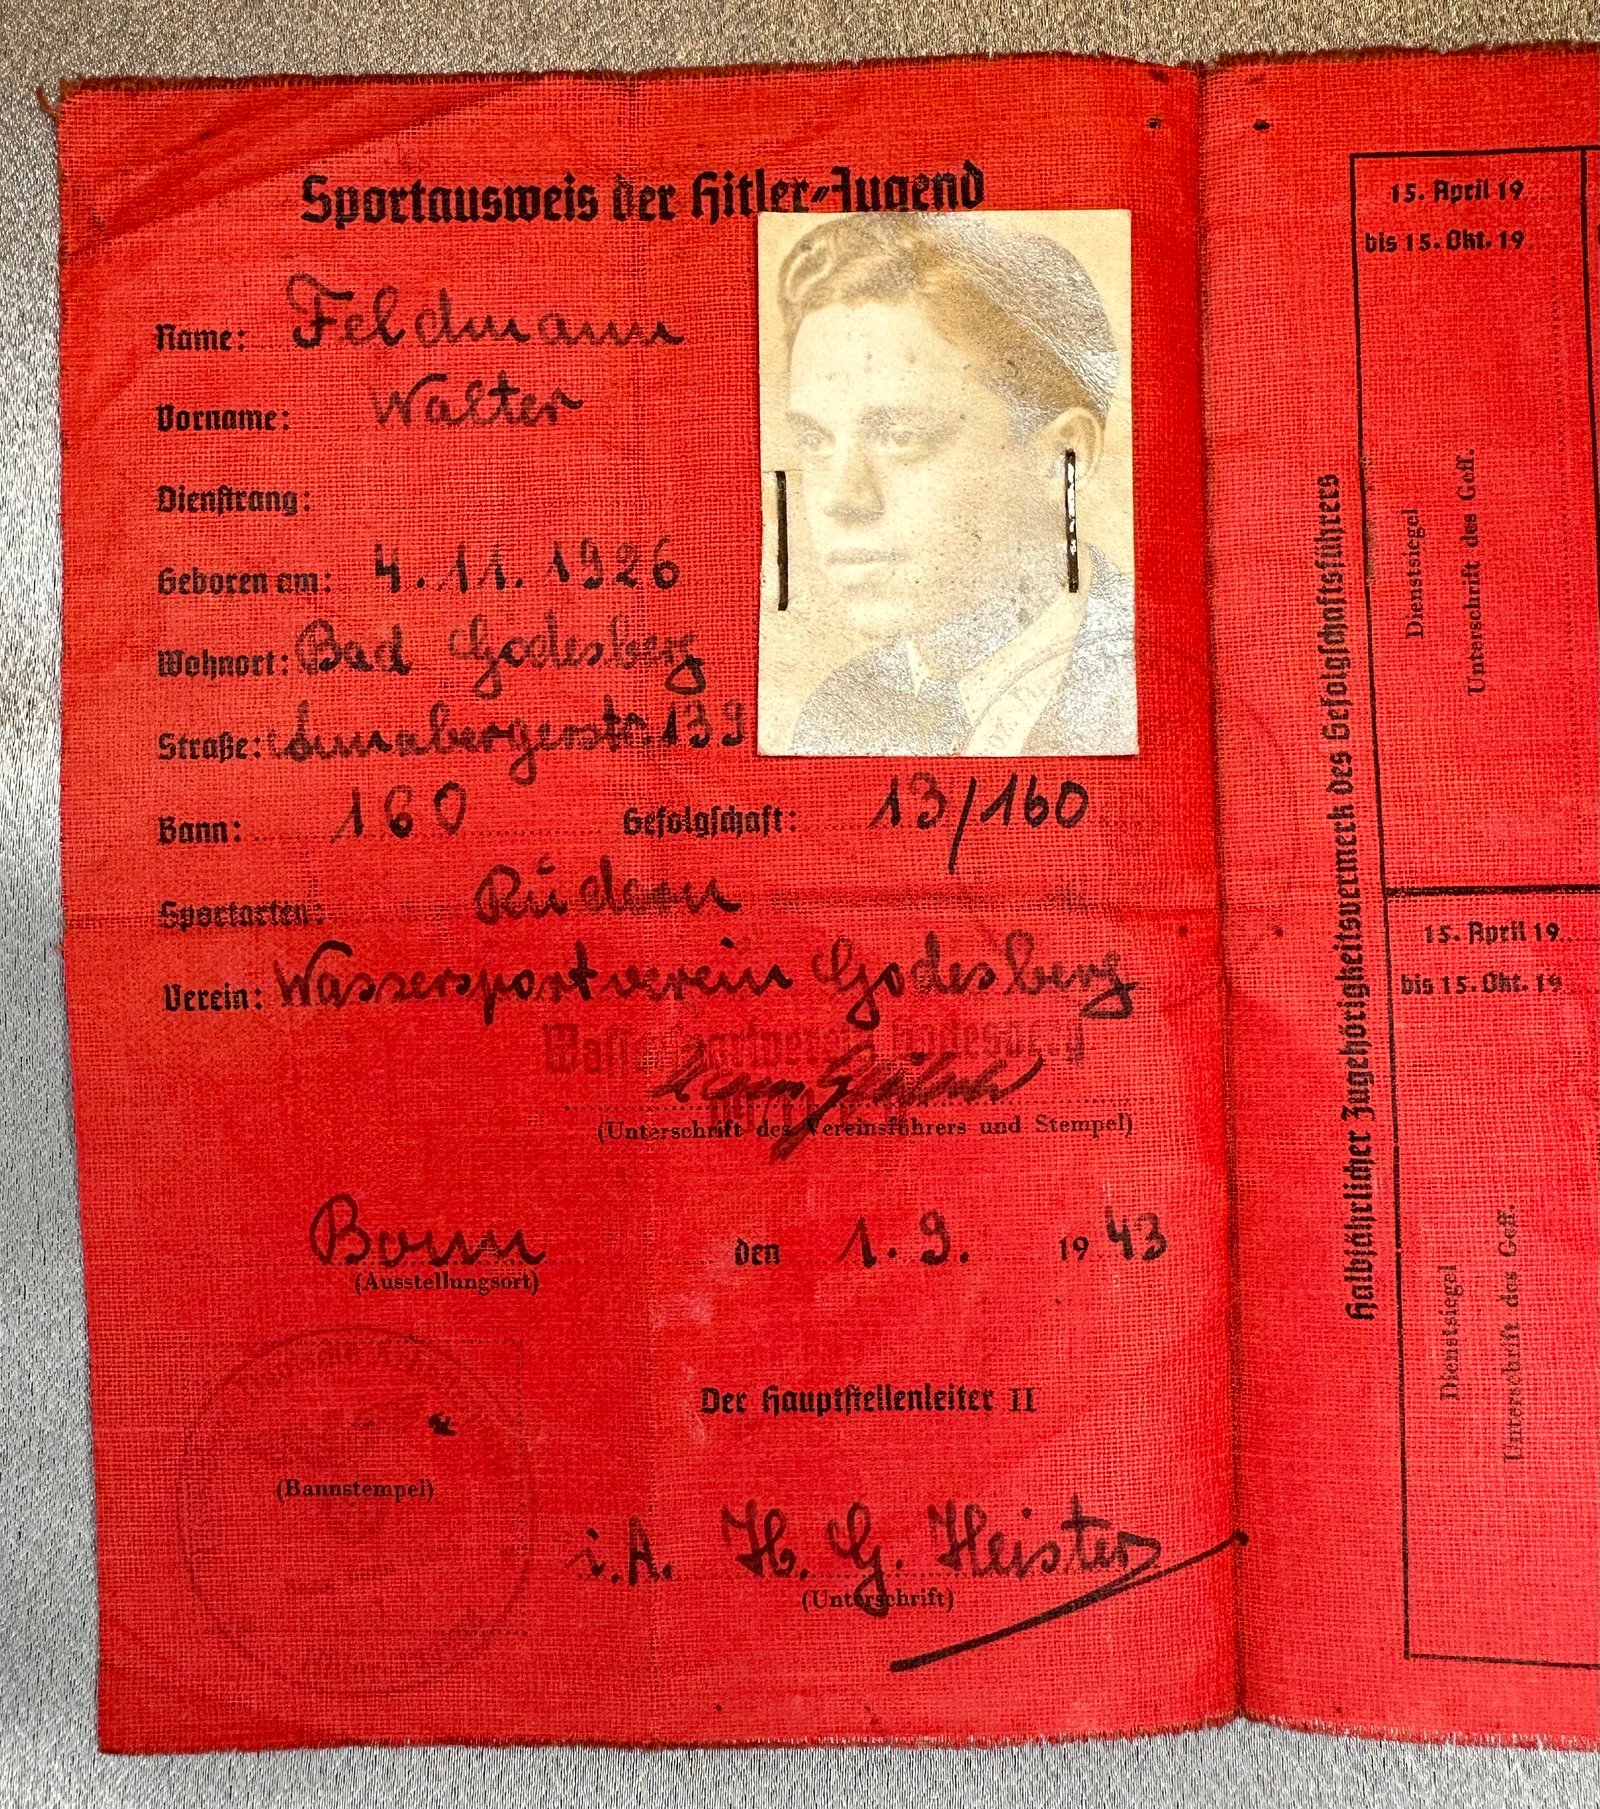 Sportausweis der Hitler-Jugend
Name: Feldmann
Vorname: Walter
Dienstrang:
Geboren am: 4.11.1926
Wohnort: Bad Godesberg
Straße: 139
Bann: 160 Gefolgschaft: 13/160
Sportarten: Rudern
Verein: Wassersportverein Godesberg
Wassersportverein Godesberg
(Unterschrift des Vereinsführers und Stempel)
Bonn den 1.9. 1943
(Ausstellungsort)
Der Hauptstellenleiter II
(Bannstempel)
i.A. H. G. Heister
(Unterschrift)
Halbjährlicher Zugehörigkeitsvermerk des Gefolgschaftsführers
15. April 19
bis 15. Okt. 19
Dienstsiegel
Unterschrift des Geff.
15. April 19
bis 15. Okt. 19
Dienstsiegel
Unterschrift des Geff.